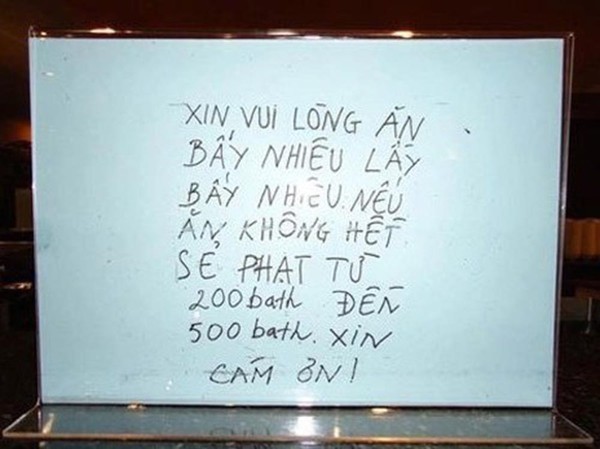 XIN VUI LÒNG ĂN
BẤY NHIÊU LẤY
BẤY NHIÊU. NẾU
ĂN KHÔNG HẾT
SẺ PHẠT TỪ
200 bath ĐẾN
500 bath. XIN
CÁM ƠN!